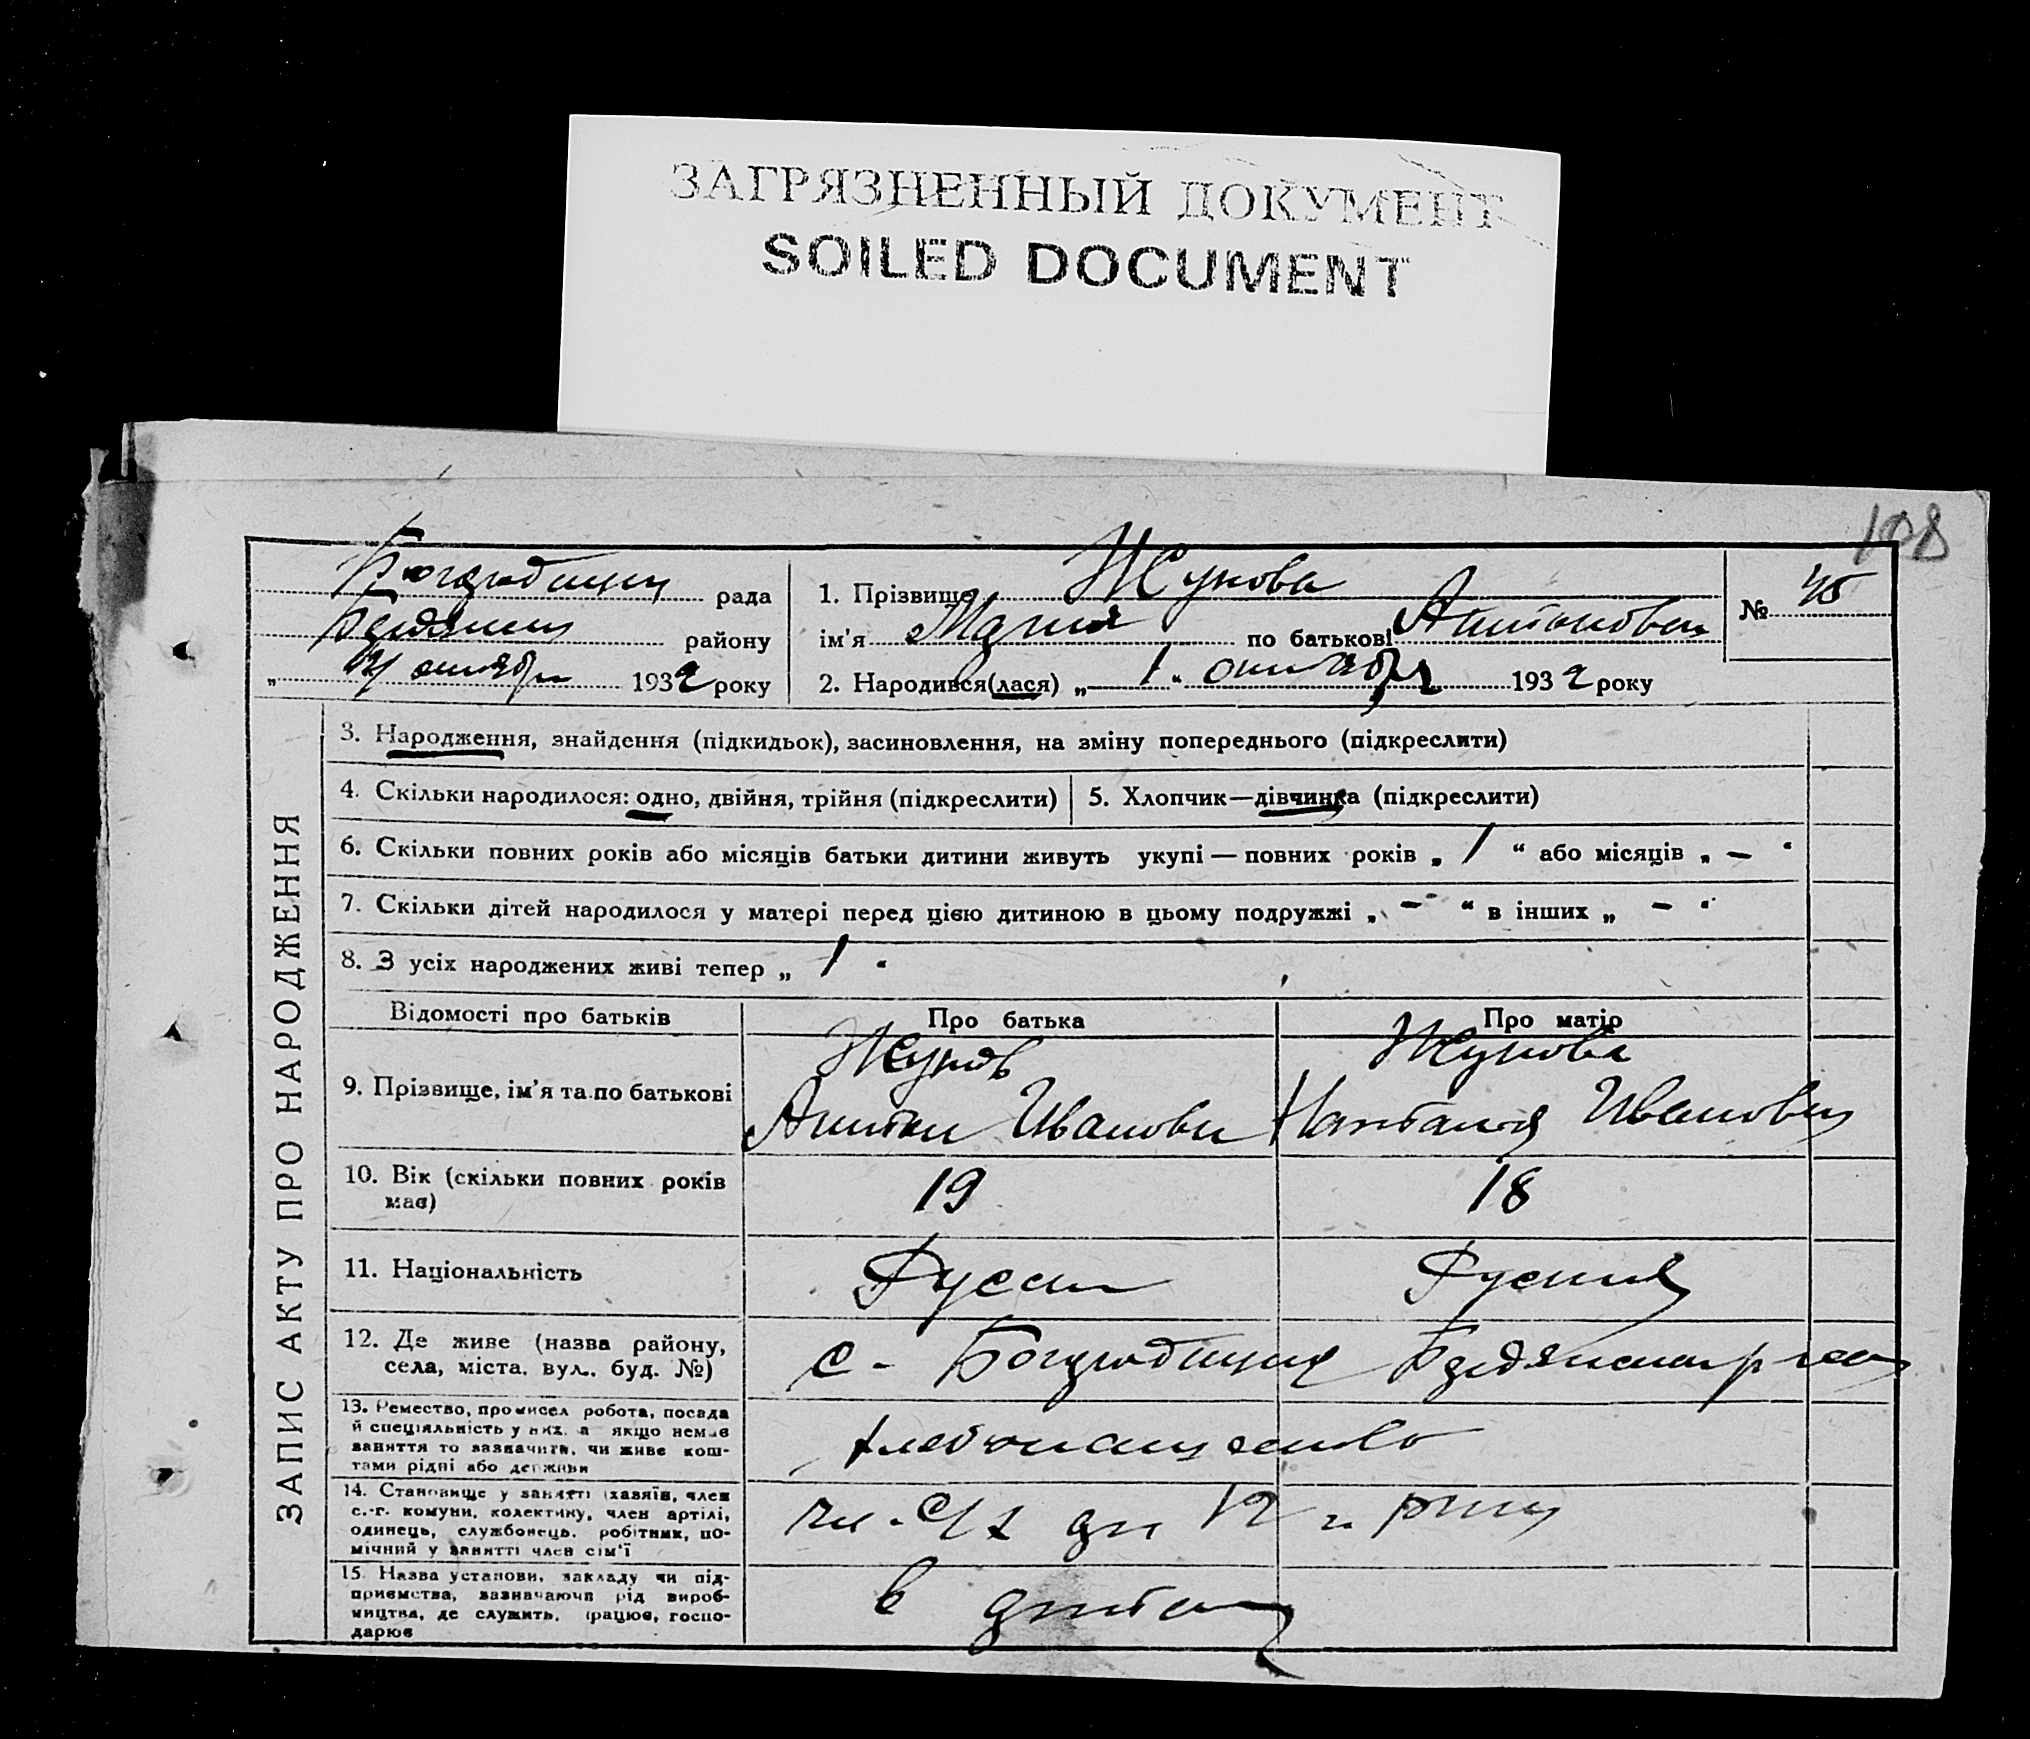 ЗАГРЯЗНЕННЫЙ ДОКУМЕНТ
SOILED DOCUMENT
108
рада
району
октября 1932 року
1. Прізвище Жукова
ім'я Мария по батькові Антоновна
2. Народився(лася) „1“ октября 1932 року
№ 45
ЗАПИС АКТУ ПРО НАРОДЖЕННЯ
3. Народження, знайдення (підкидьок), засиновлення, на зміну попереднього (підкреслити)
4. Скільки народилося: одно, двійня, трійня (підкреслити)
5. Хлопчик—дівчинка (підкреслити)
6. Скільки повних років або місяців батьки дитини живуть укупі — повних років „ 1 “ або місяців „ — “
7. Скільки дітей народилося у матері перед цією дитиною в цьому подружжі „ — “ в інших „ — “
8. З усіх народжених живі тепер „ 1 “
Відомості про батьків
Про батька
Про матір
9. Прізвище, ім'я та по батькові
Жуков
Антон Иванов
Жукова
Наталия Иванов
10. Вік (скільки повних років
має)
19
18
11. Національність
Русск
Руския
12. Де живе (назва району,
села, міста, вул., буд. №)
с-
13. Ремество, промисел робота, посада
й спеціяльність у них, а якщо немає
заняття то зазначити, чи живе кош-
тами рідні або держави
14. Становище у занятті (хазяїн, член
с.-г. комуни, колективу, член артілі,
одинець, службовець, робітник, по-
мічний у занятті член сім'ї
15. Назва установи, закладу чи під-
приємства, зазначаючи рід вироб-
ництва, де служить, працює, госпо-
дарює
в